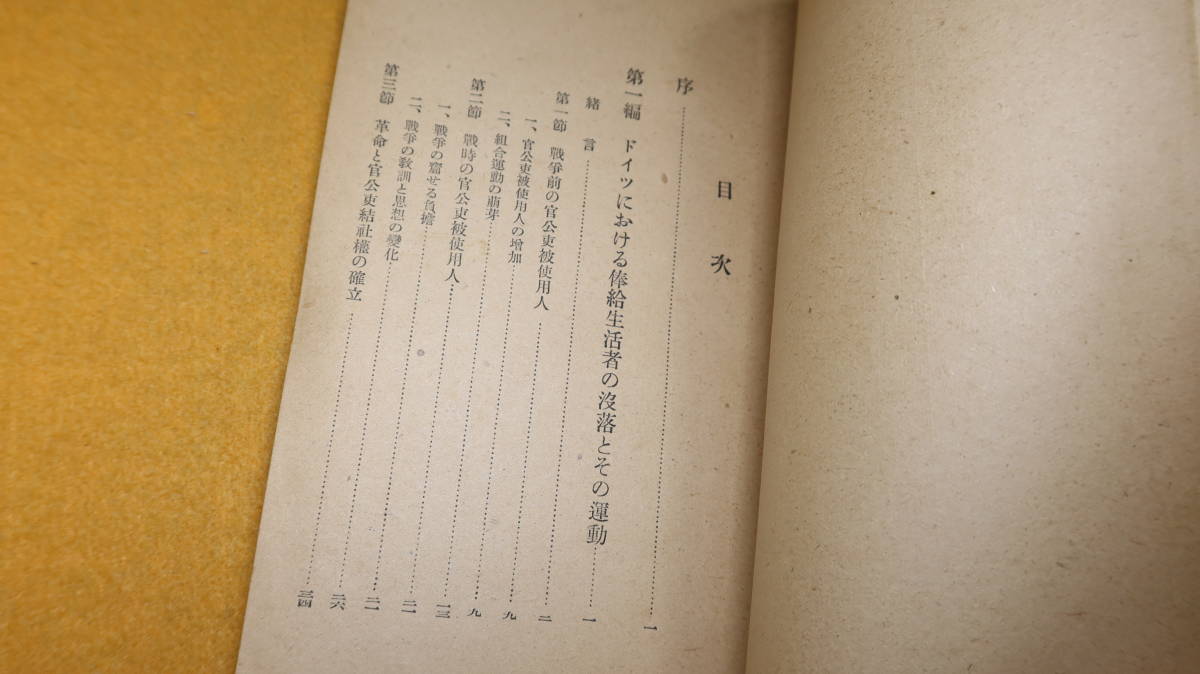 目次
序……一
第一編 ドイツにおける俸給生活者の沒落とその運動……一
緒言……二
第一節 戰爭前の官公吏被使用人……九
一、官公吏被使用人の增加……九
二、組合運動の萠芽……一三
第二節 戰時の官公吏被使用人……二一
一、戰爭の齎せる負擔……二一
二、戰爭の敎訓と思想の變化……二六
第三節 革命と官公吏結社權の確立……三四